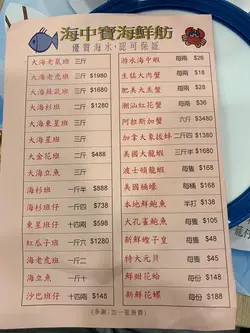 海中寶海鮮舫
優質海水，認可保証
大海老鼠斑 三斤
大海老虎斑 三斤 $1980
大海棘氣斑 三斤 $1680
大海杉斑 二斤 $1280
大海東星斑 三斤
大星斑 三斤
大金花斑 二斤 $488
大海立魚 三斤
海杉斑 一斤半 $888
海杉斑仔 一斤二兩 $638
東星斑仔 十四兩 $598
紅瓜子斑 一斤二兩 $1280
海老虎斑 一斤二
海立魚 一斤十
沙巴斑仔 十四兩 $148
游水海中蝦 每兩 $26
生猛大肉蟹 每兩 $18
肥美大羔蟹 每兩 $28
潮汕紅花蟹 每兩 $36
阿拉斯加蟹 六斤 $3680
加拿大象拔蚌 二斤四 $1380
美國大龍蝦 三斤半 $1680
波士頓龍蝦 每隻
美國桶蠔 每隻
本地鮮鮑魚 半打 $138
大孔雀鮑魚 每隻 $108
新鮮蟶子皇 每隻 $48
特大元貝 每隻 $48
鮮甜花蛤 每份 $148
新鮮花螺 每份 $188
(多謝：加一服務費)